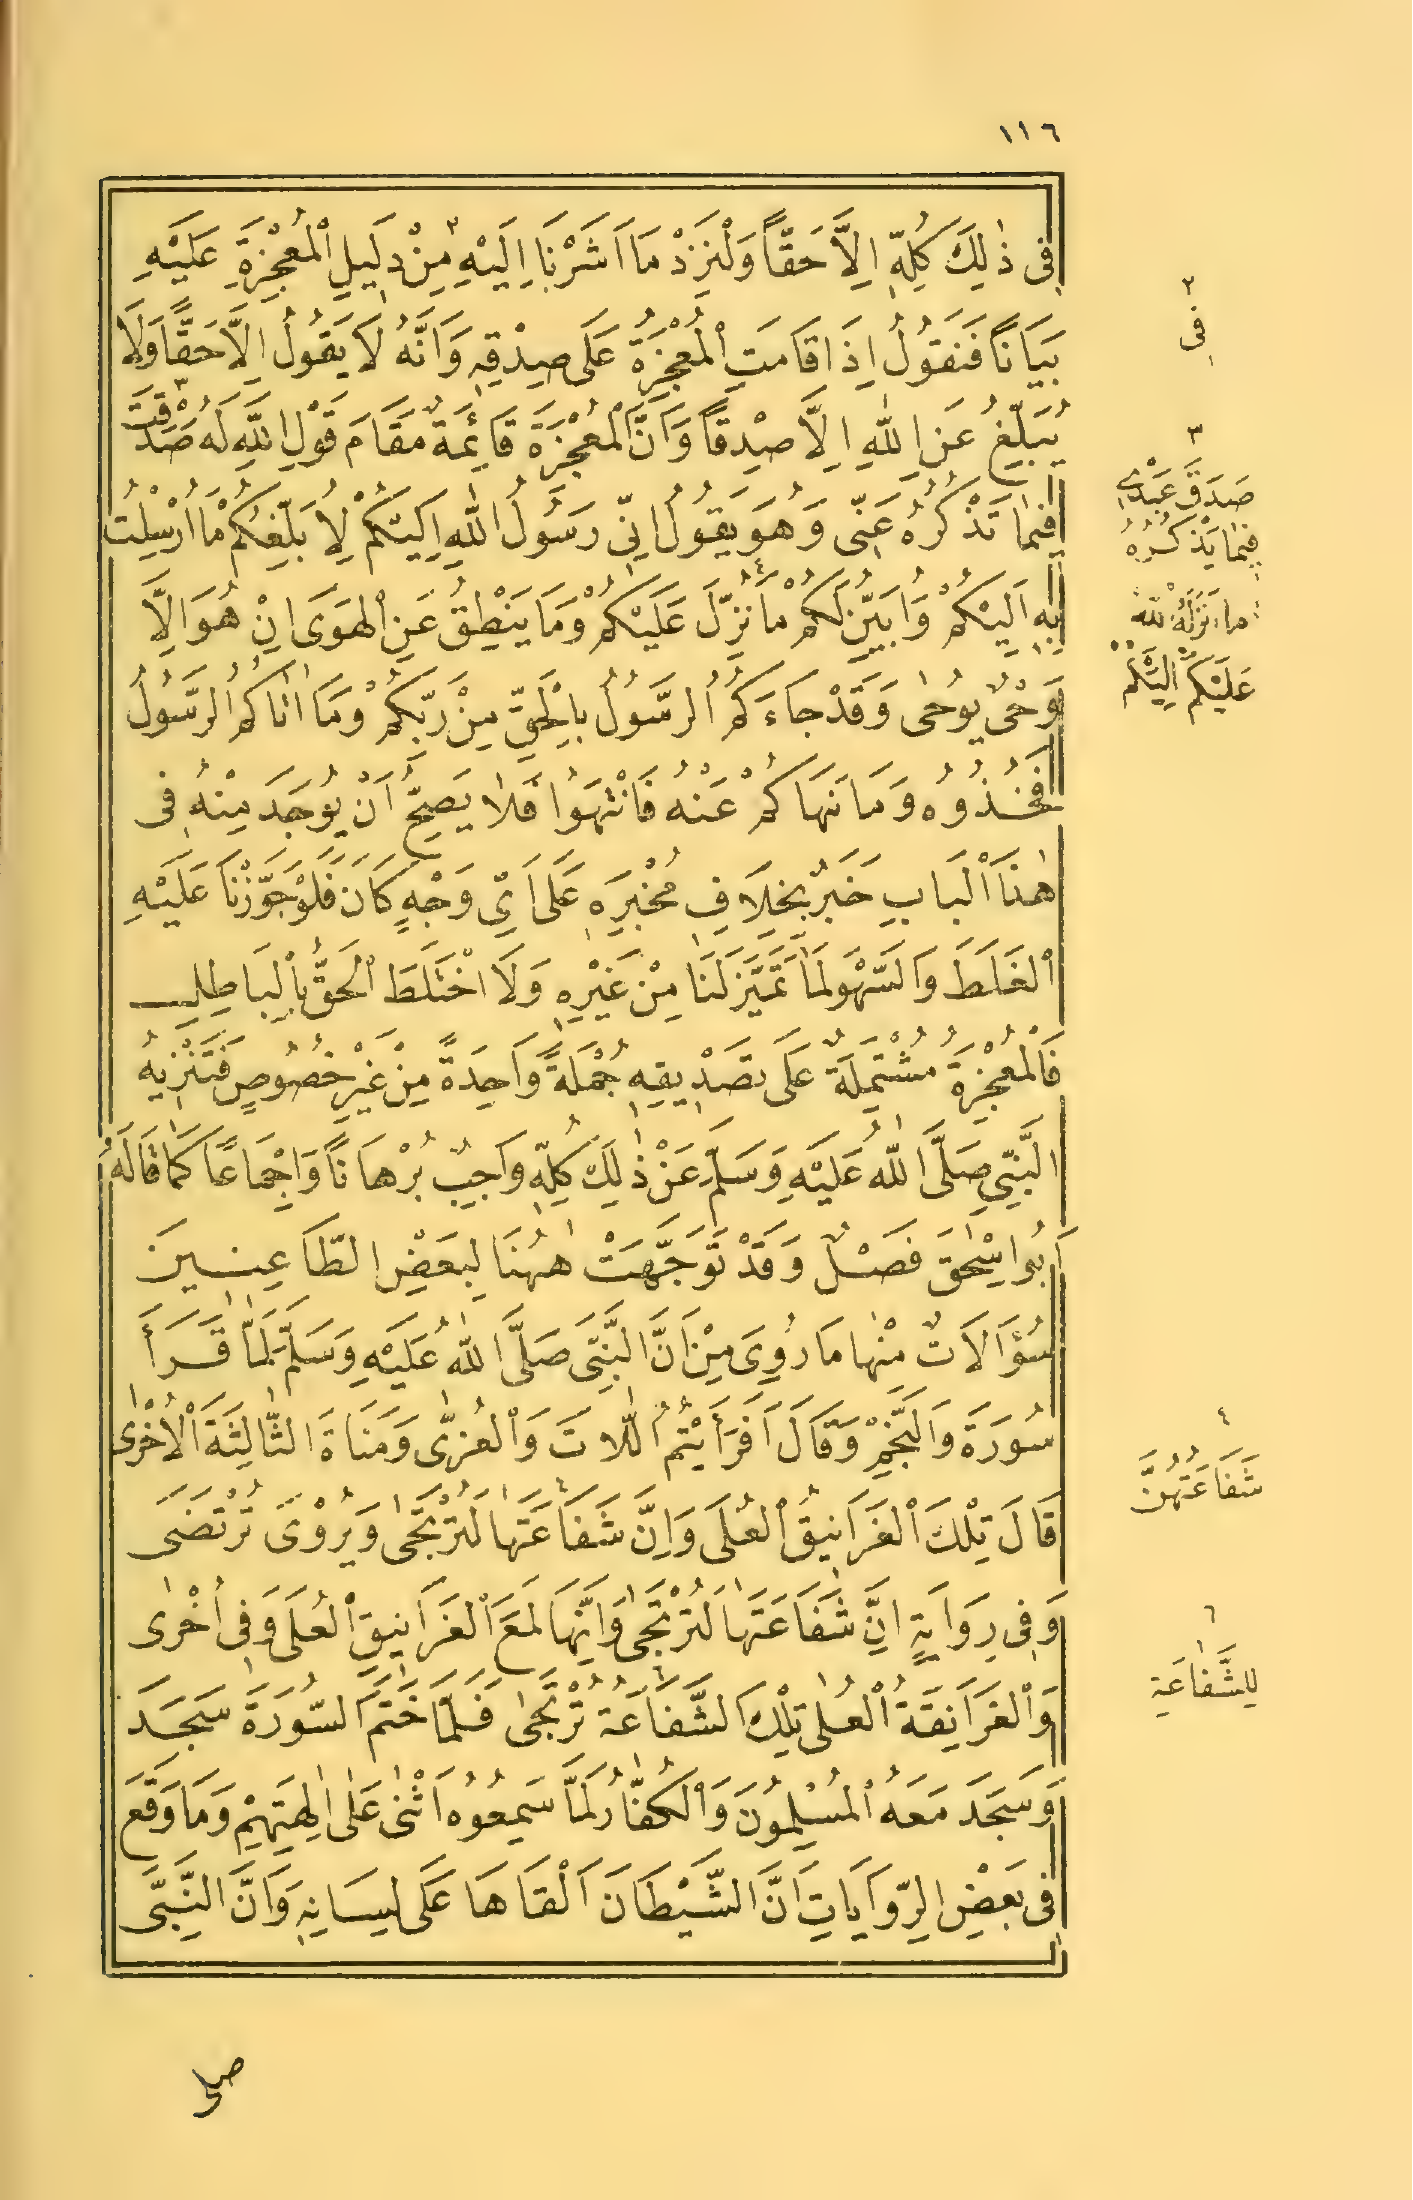 ١١٦
فِى ذٰلِكَ كُلِّهِ اِلَّا حَقًّا وَلْنَزِدْ مَا اَشَرْنَا اِلَيْهِ ٣ مِنْ دَلِيلِ الْمُعْجِزَةِ عَلَيْهِ
بَيَانًا فَنَقُولُ اِذَا قَامَتِ الْمُعْجِزَةُ عَلَى صِدْقِهِ وَاَنَّهُ لَا يَقُولُ اِلَّا حَقًّا وَلَا
يُبَلِّغُ عَنِ اللّٰهِ اِلَّا صِدْقًا وَاَنَّ الْمُعْجِزَةَ قَائِمَةٌ مَقَامَ قَوْلِ اللّٰهِ لَهُ صَدَقْتَ ٣
فِيمَا تَذْكُرُهُ عَنِّى وَهُوَ يَقُولُ اِنِّى رَسُولُ اللّٰهِ اِلَيْكُمْ لِاُبَلِّغَكُمْ مَا اُرْسِلْتُ
بِهِ اِلَيْكُمْ وَاُبَيِّنَ لَكُمْ مَا نُزِّلَ ٤ عَلَيْكُمْ وَمَا يَنْطِقُ عَنِ الْهَوَى اِنْ هُوَ اِلَّا
وَحْىٌ يُوحٰى وَقَدْ جَاءَكُمُ الرَّسُولُ بِالْحَقِّ مِنْ رَبِّكُمْ وَمَا اٰتَاكُمُ الرَّسُولُ
فَخُذُوهُ وَمَا نَهَاكُمْ عَنْهُ فَانْتَهُوا فَلَا يَصِحُّ اَنْ يُوجَدَ مِنْهُ فِى
هٰذَا الْبَابِ خَبَرٌ بِخِلَافِ مُخْبَرِهِ عَلَى اَىِّ وَجْهٍ كَانَ فَلَوْ جَوَّزْنَا عَلَيْهِ
الْغَلَطَ وَالسَّهْوَ لَمَا تَمَيَّزَ لَنَا مِنْ غَيْرِهِ وَلَا اخْتَلَطَ الْحَقُّ بِالْبَاطِلِ
فَالْمُعْجِزَةُ مُشْتَمِلَةٌ عَلَى تَصْدِيقِهِ جُمْلَةً وَاحِدَةً مِنْ غَيْرِ خُصُوصٍ فَتَنْزِيهُ
النَّبِىِّ صَلَّى اللّٰهُ عَلَيْهِ وَسَلَّمَ عَنْ ذٰلِكَ كُلِّهِ وَاجِبٌ بُرْهَانًا وَاِجْمَاعًا كَمَا قَالَهُ
اَبُو اِسْحٰقَ فَصْلٌ وَقَدْ تَوَجَّهَتْ هٰهُنَا لِبَعْضِ الطَّاعِنِينَ
سُؤَالَاتٌ مِنْهَا مَا رُوِىَ مِنْ اَنَّ النَّبِىَّ صَلَّى اللّٰهُ عَلَيْهِ وَسَلَّمَ لَمَّا قَرَأَ
سُورَةَ وَالنَّجْمِ وَقَالَ اَفَرَأَيْتُمُ اللَّاتَ وَالْعُزّٰى وَمَنَاةَ الثَّالِثَةَ الْاُخْرٰى
قَالَ تِلْكَ الْغَرَانِيقُ الْعُلَى وَاِنَّ شَفَاعَتَهَا ٤ لَتُرْتَجٰى وَيُرْوٰى تُرْتَضَى
وَفِى رِوَايَةٍ اِنَّ شَفَاعَتَهَا لَتُرْتَجٰى وَاِنَّهَا لَمَعَ الْغَرَانِيقِ الْعُلَى وَفِى اُخْرٰى
وَالْغَرَانِقَةُ الْعُلٰى تِلْكَ الشَّفَاعَةُ ٦ تُرْتَجٰى فَلَمَّا خَتَمَ السُّورَةَ سَجَدَ
وَسَجَدَ مَعَهُ الْمُسْلِمُونَ وَالْكُفَّارُ لَمَّا سَمِعُوهُ اَثْنٰى عَلٰى اٰلِهَتِهِمْ وَمَا وَقَعَ
فِى بَعْضِ الرِّوَايَاتِ اَنَّ الشَّيْطَانَ اَلْقَاهَا عَلَى لِسَانِهِ وَاَنَّ النَّبِىَّ
٢
فِى
٣
صَدَقَ عَبْدِى
فِيمَا يَذْكُرُهُ
مَا نَزَّلَهُ اللّٰه
عَلَيْكُمْ اِلَيْكُمْ
٤
شَفَاعَتَهُنَّ
٦
لِلشَّفَاعَةِ
صلى